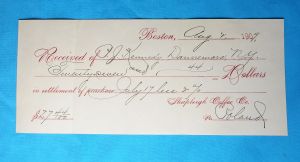 Boston, Aug 7, 1897
Received of P. J. Kennedy Dannemora N.Y.
Seventy seven and 44 Dollars
in settlement of purchase July 17 Less 2%
Shapleigh Coffee Co.
$77.44 Per Poland